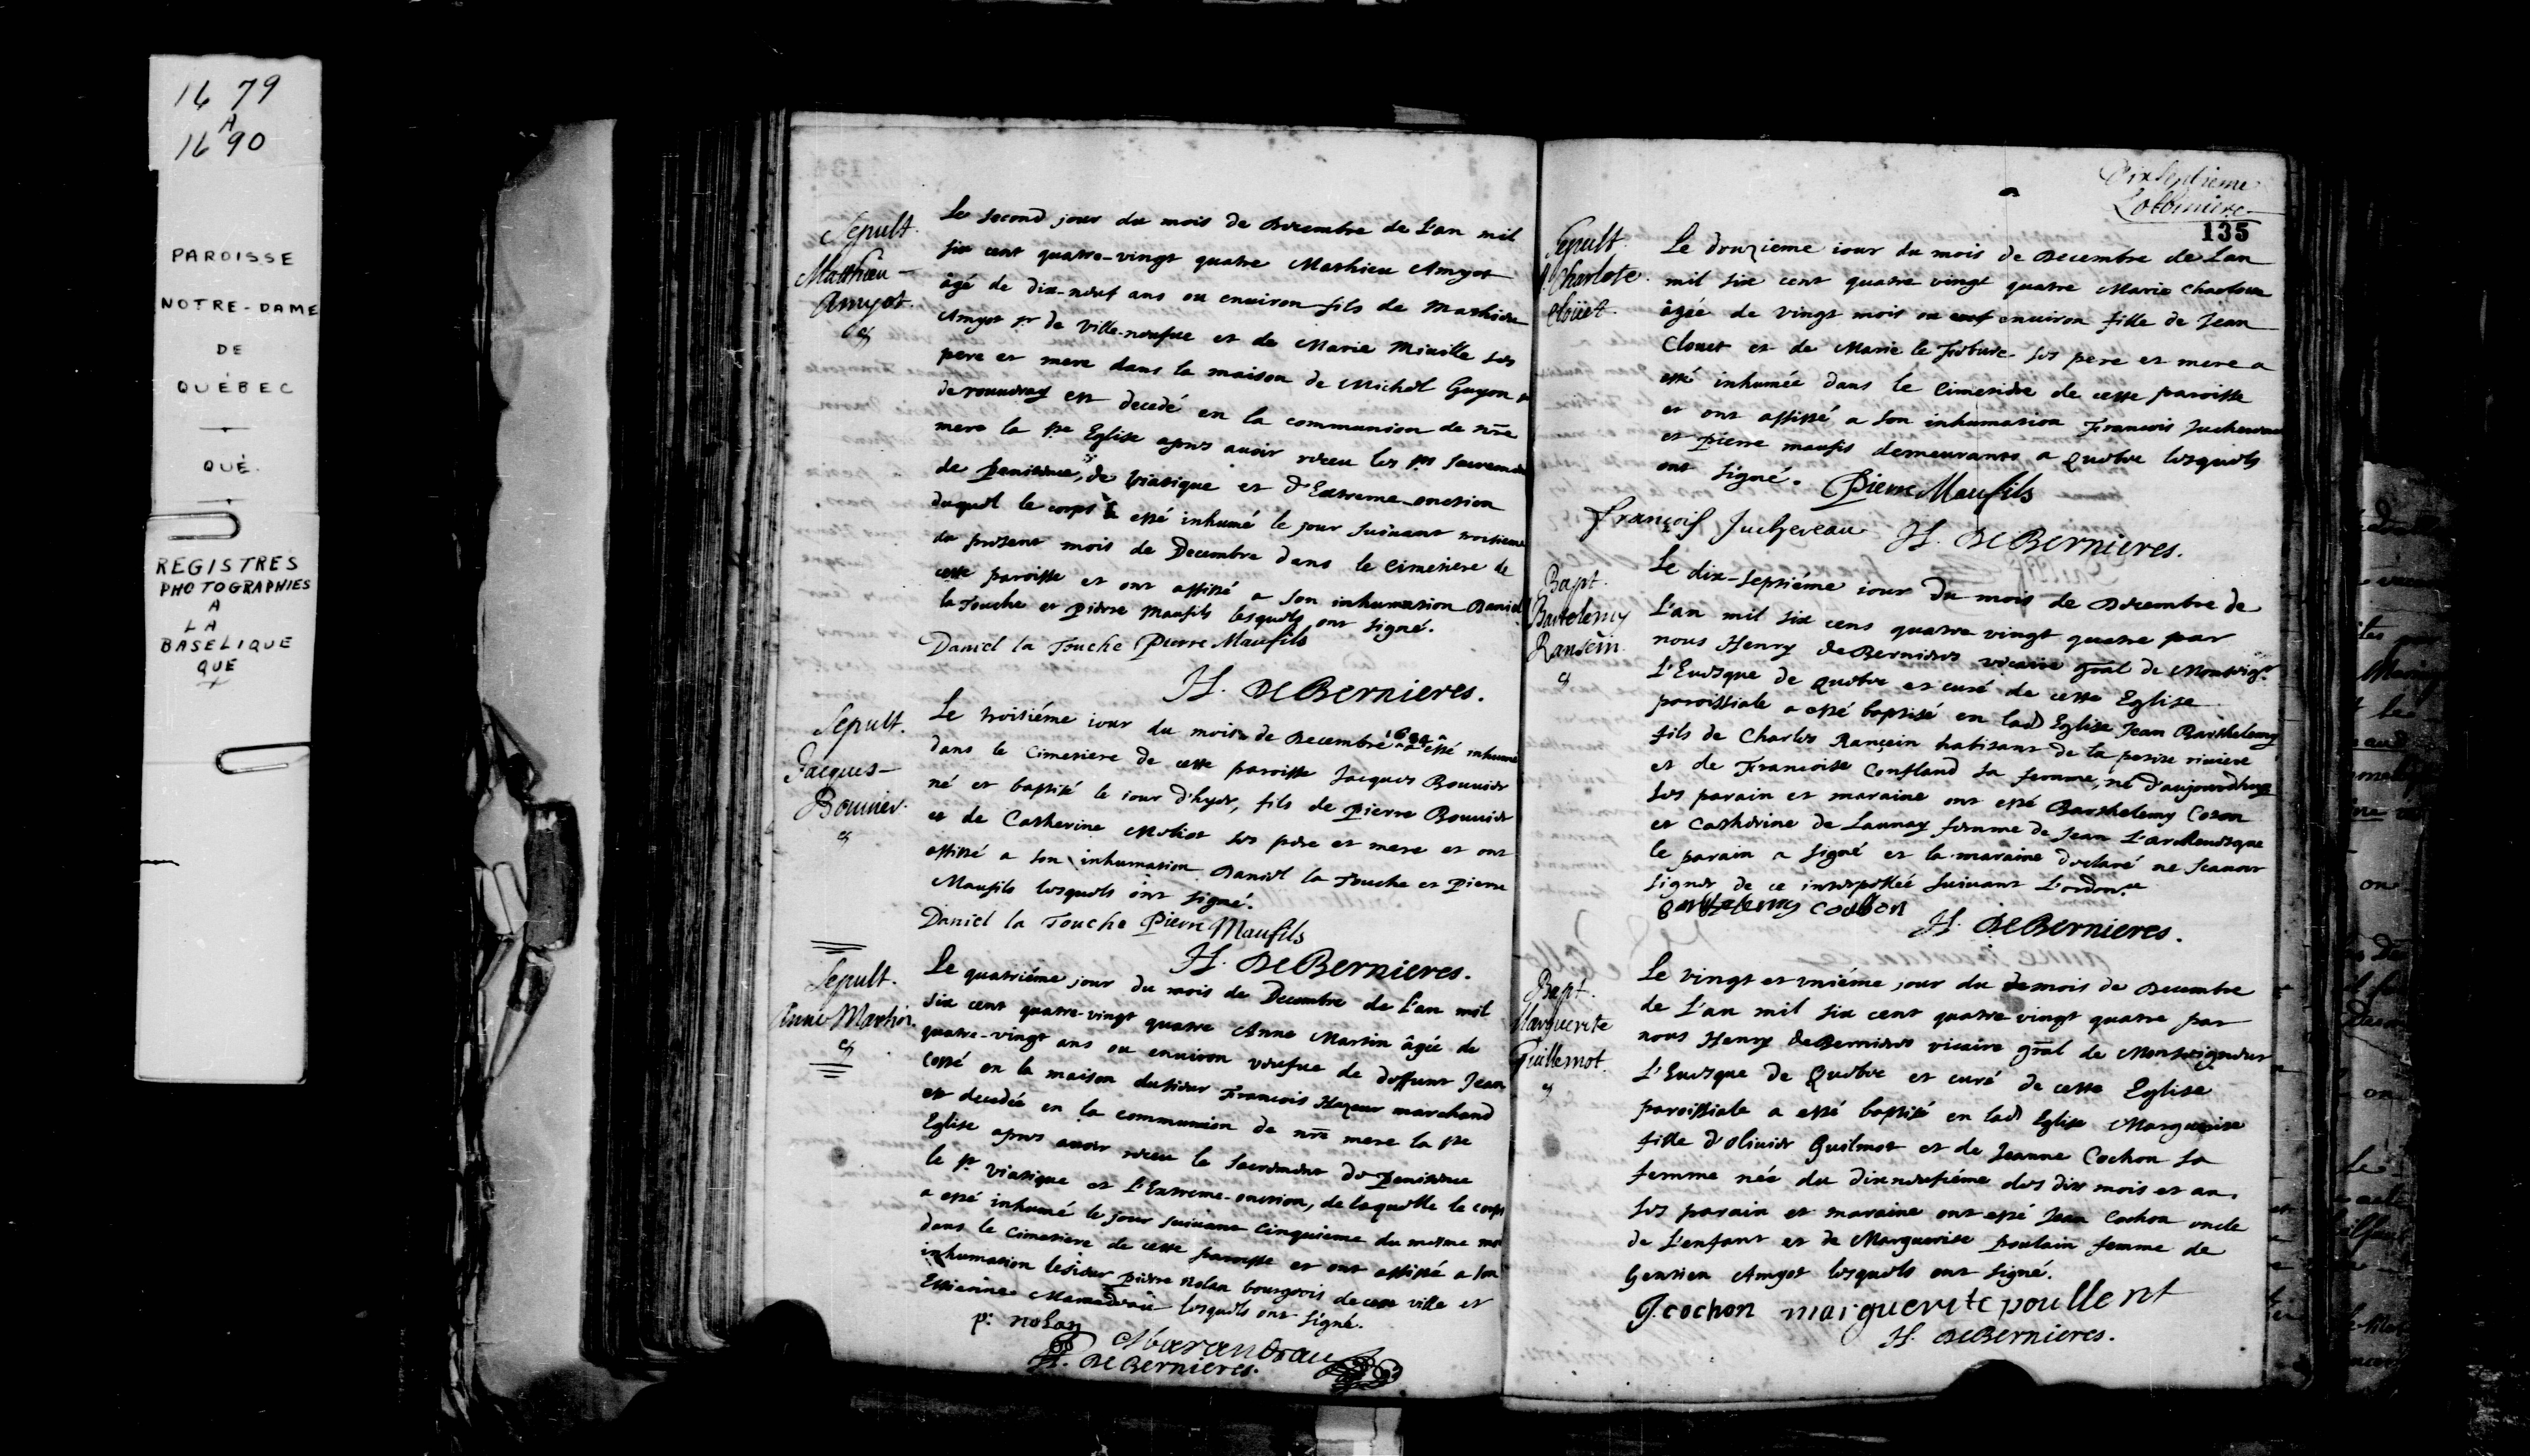 1679
A
1690
PAROISSE
NOTRE-DAME
DE
QUÉBEC
QUÉ.
REGISTRES
PHOTOGRAPHIES
A
LA
BASELIQUE
QUE
Sepult.
Matthieu
Amyot.
Le second jour du mois de Decembre de L'an mil
six cent quatre-vingt quatre Mathieu Amyot
âgé de dix-neuf ans ou enuiron fils de Mathieu
Amyot sr de Ville-neufue et de Marie Miuille ses
pere et mere dans la maison de Michel Guyon sr
de rouuray est decedé en la communion de nre
mere la ste Eglise apres auoir receu les sts Sacremens
de Penitence, de Viatique et d'Extreme-onction
duquel le corps a esté inhumé le jour suiuant troisieme
du present mois de Decembre dans le Cimetiere de
cette paroisse et ont assisté a son inhumation Daniel
la Touche et Pierre Maufils lesquels ont signé.
Daniel la Touche Pierre Maufils
H. DeBernieres.
Sepult.
Jacques
Bouuier.
Le troisiéme iour du mois de Decembre 1684 a esté inhumé
dans le Cimetiere de cette paroisse Jacques Bouuier
né et baptisé le iour d'hyer, fils de Pierre Bouuier
et de Catherine Meliot ses pere et mere et ont
assisté a son inhumation Daniel la Touche et Pierre
Maufils lesquels ont signé.
Daniel la Touche Pierre Maufils
H. DeBernieres.
Sepult.
Anne Martin.
Le quatriéme jour du mois de Decembre de L'an mil
six cent quatre-vingt quatre Anne Martin âgée de
quatre-vingt ans ou enuiron veufue de deffunt Jean
Costé en la maison du sieur Francois Hazeur marchand
est decedée en la communion de nre mere la ste
Eglise apres auoir receu le Sacrement de Penitence
le st viatique et L'Extreme-onction, de laquelle le corps
a esté inhumé le jour suiuant cinquieme du mesme mois
dans le Cimetiere de cette paroisse et ont assisté a son
inhumation le sieur Pierre Nolan bourgeois de cette ville et
Estienne Marandeau lesquels ont signé.
p: nolan
Marandeau
H. DeBernieres.
Dixseptieme
Lotbiniere
135
Sepult.
Charlote
Cloüet.
Le douzieme iour du mois de Decembre de Lan
mil six cent quatre vingt quatre Marie Charlotte
âgée de vingt mois ou enuiron fille de Jean
Clouet et de Marie le Febure ses pere et mere a
esté inhumée dans le Cimetiere de cette paroisse
et ont assisté a son inhumation Francois Juchereau
et pierre maufils demeurants a Quebec lesquels
ont signé. Pierre Maufils
françois Juchereau H. DeBernieres.
Bapt.
Bartelemy
Ransein.
Le dix-septiéme iour du mois de Decembre de
L'an mil six cens quatre vingt quatre par
nous Henry de Bernieres vicaire gnal de Monseigr
L'Euesque de Quebec et curé de cette Eglise
paroissiale a esté baptisé en lad Eglise Jean Barthelemy
fils de Charles Rançein habitant de la petite riuiere
et de Francoise Confland sa femme, né d'aujourdhuy
ses parain et maraine ont esté Barthelemy Coton
et Catherine de Launay femme de Jean L'archeuesque
le parain a signé et la maraine declaré ne scauoir
signer de ce interpellée suiuant L'ordonce
barthelemy cotton
H. DeBernieres.
Bapt.
Marguerite
Guillemot.
Le vingt et vniéme jour du de mois de Decembre
de L'an mil six cent quatre vingt quatre par
nous Henry de Bernieres vicaire gnal de Monseigneur
L'Euesque de Quebec et curé de cette Eglise
paroissiale a esté baptisé en lad Eglise Marguerite
fille d'oliuier Guilmot et de Jeanne Cochon sa
femme née du dixneufiéme des dits mois et an.
ses parain et maraine ont esté Jean Cochon oncle
de L'enfant et de Marguerite Poulain femme de
Gentien Amyot lesquels ont signé.
J. cochon marguerite poullent
H. DeBernieres.